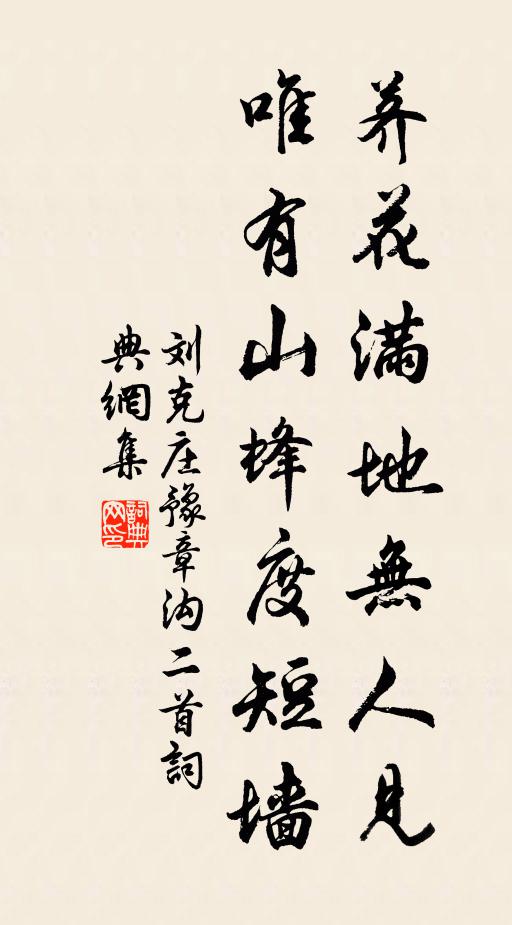 荞花满地無人見
唯有山蜂度短墙
刘克庄豫章沟二首詞
典網集
詞典
网印